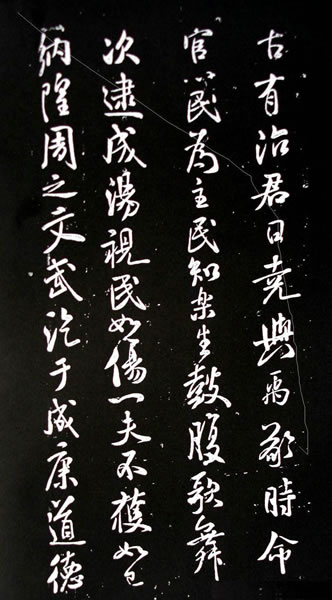 古有治君曰堯與禹敬時命
官以民為主民知樂生鼓腹歌舞
次逮成湯視民如傷一夫不獲如己
納隍周之文武訖于成康道德